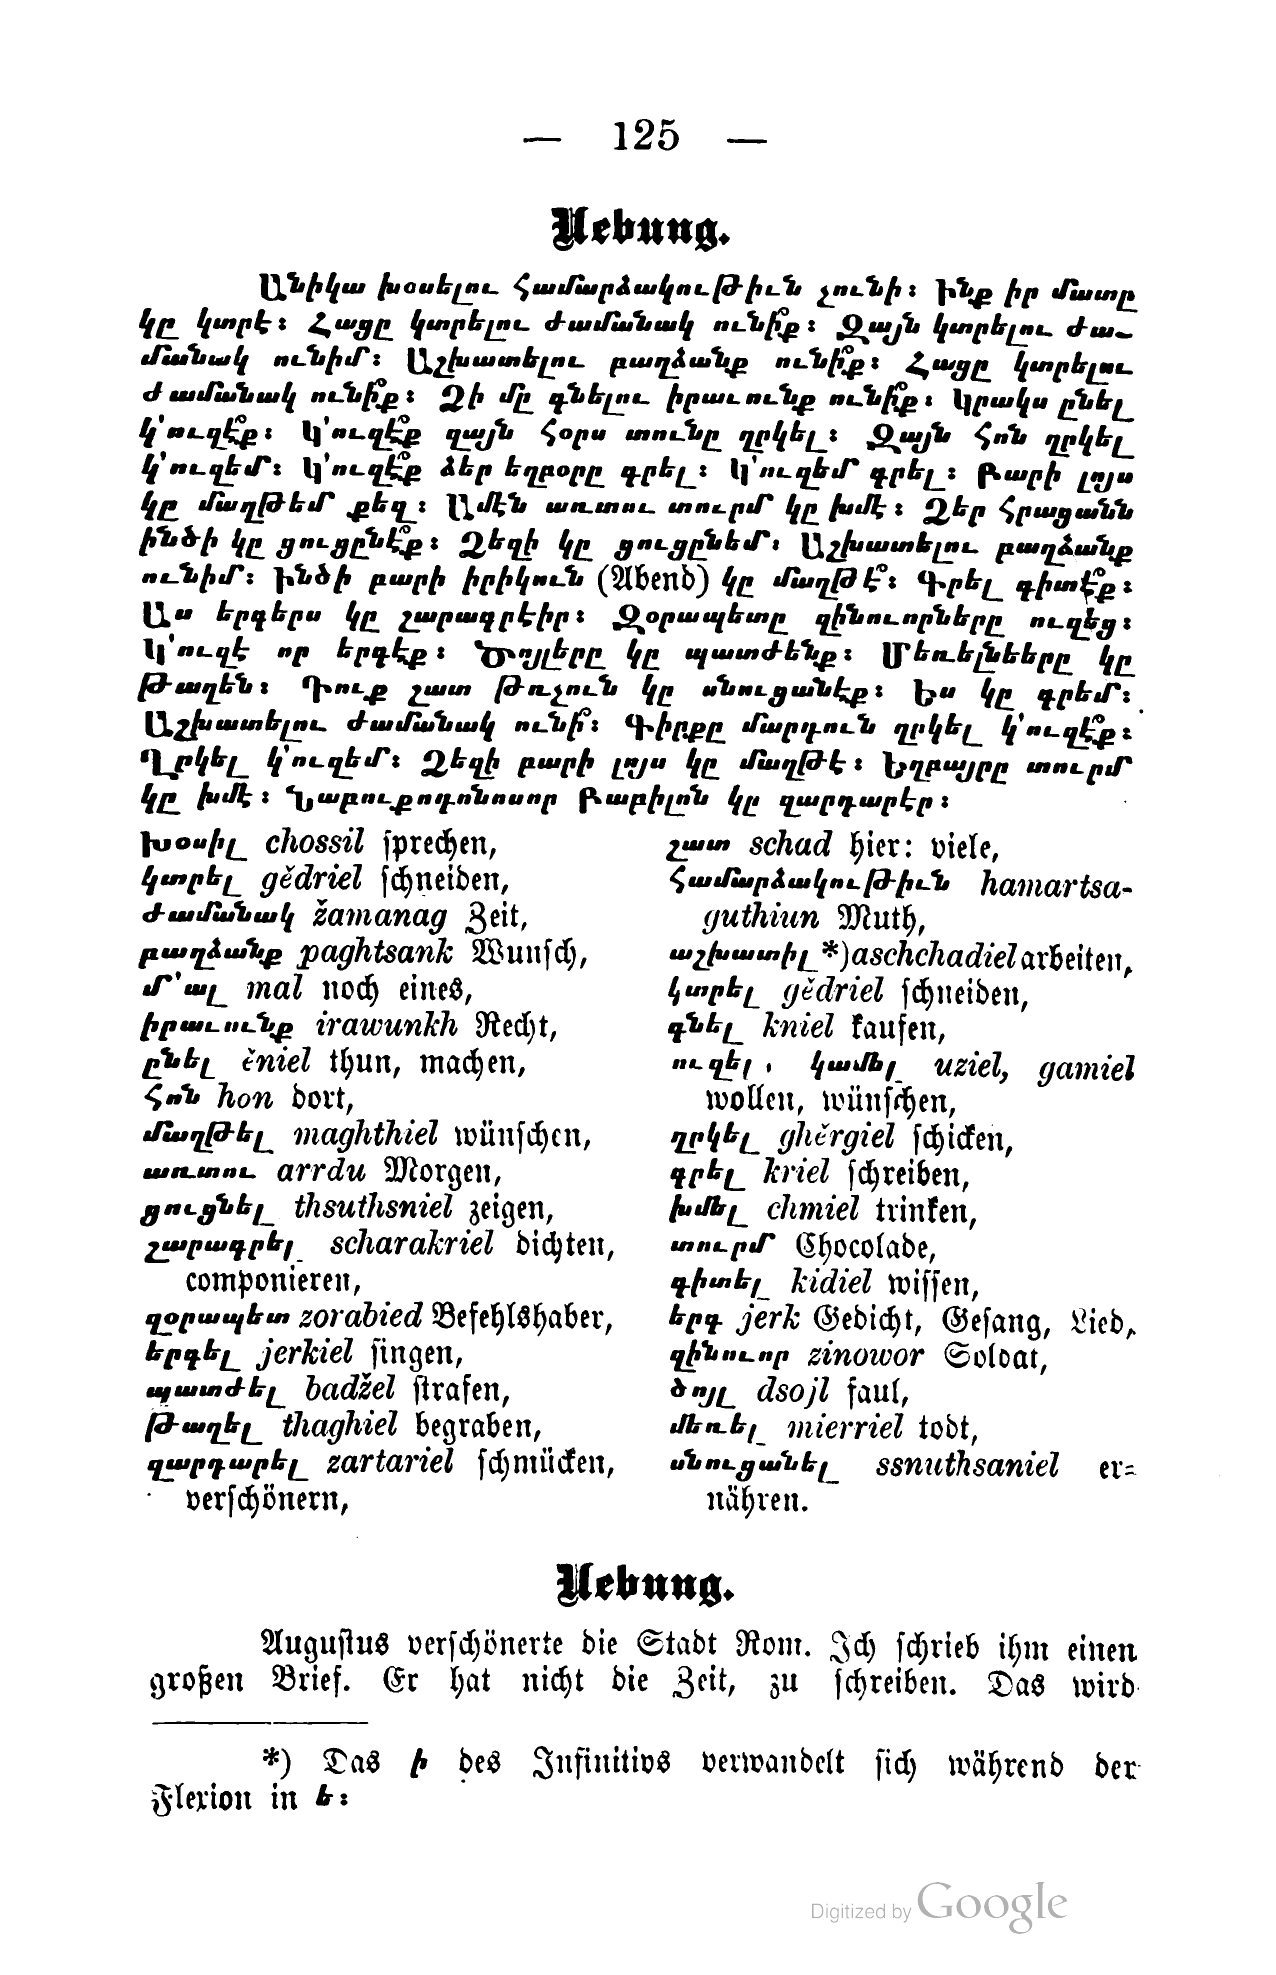 — 125 —
Uebung.
Անիկա խօսելու համարձակութիւն չունի։ Ինք իր մատը
կը կտրէ։ Հացը կտրելու ժամանակ ունի՞ք։ Զայն կտրելու ժա-
մանակ ունիմ։ Աշխատելու բաղձանք ունի՞ք։ Հացը կտրելու
ժամանակ ունի՞ք։ Ձի մը գնելու իրաւունք ունի՞ք։ Կրակս ընել
կ'ուզէ՞ք։ Կ'ուզէ՞ք զայն հօրս տունը ղրկել։ Զայն հոն ղրկել
կ'ուզեմ։ Կ'ուզէ՞ք ձեր եղբօրը գրել։ Կ'ուզեմ գրել։ Բարի լոյս
կը մաղթեմ քեզ։ Ամէն առտու տուրմ կը խմէ։ Ձեր հրացանն
ինծի կը ցուցընէ՞ք։ Ձեզի կը ցուցընեմ։ Աշխատելու բաղձանք
ունիմ։ Ինծի բարի իրիկուն (Abend) կը մաղթէ՞։ Գրել գիտէ՞ք։
Աս երգերս կը շարագրէիր։ Զօրապետը զինուորները ուզեց։
Կ'ուզէ որ երգէք։ Ծոյլերը կը պատժենք։ Մեռելները կը
թաղեն։ Դուք շատ թռչուն կը սնուցանէք։ Ես կը գրեմ։
Աշխատելու ժամանակ ունի՞։ Գիրքը մարդուն ղրկել կ'ուզէ՞ք։
Ղրկել կ'ուզեմ։ Ձեզի բարի լոյս կը մաղթէ։ Եղբայրը տուրմ
կը խմէ։ Նաբուքոդոնոսոր Բաբիլոն կը զարդարէր։
խօսիլ chossil sprechen,
կտրել gĕdriel schneiden,
ժամանակ žamanag Zeit,
բաղձանք paghtsank Wunsch,
մ'ալ mal noch eines,
իրաւունք irawunkh Recht,
ընել ĕniel thun, machen,
հոն hon dort,
մաղթել maghthiel wünschen,
առտու arrdu Morgen,
ցուցնել thsuthsniel zeigen,
շարագրել scharakriel dichten,
componieren,
զօրապետ zorabied Befehlshaber,
երգել jerkiel singen,
պատժել badžel strafen,
թաղել thaghiel begraben,
զարդարել zartariel schmücken,
verschönern,
շատ schad hier: viele,
համարձակութիւն hamartsa-
guthiun Muth,
աշխատիլ *) aschchadiel arbeiten,
կտրել gĕdriel schneiden,
գնել kniel kaufen,
ուզել, կամել uziel, gamiel
wollen, wünschen,
ղրկել ghĕrgiel schicken,
գրել kriel schreiben,
խմել chmiel trinken,
տուրմ Chocolade,
գիտել kidiel wissen,
երգ jerk Gedicht, Gesang, Lied,
զինուոր zinowor Soldat,
ծոյլ dsojl faul,
մեռել mierriel todt,
սնուցանել ssnuthsaniel er-
nähren.
Uebung.
Augustus verschönerte die Stadt Rom. Ich schrieb ihm einen
großen Brief. Er hat nicht die Zeit, zu schreiben. Das wird
*) Das ի des Infinitivs verwandelt sich während der
Flexion in ե։
Digitized by Google